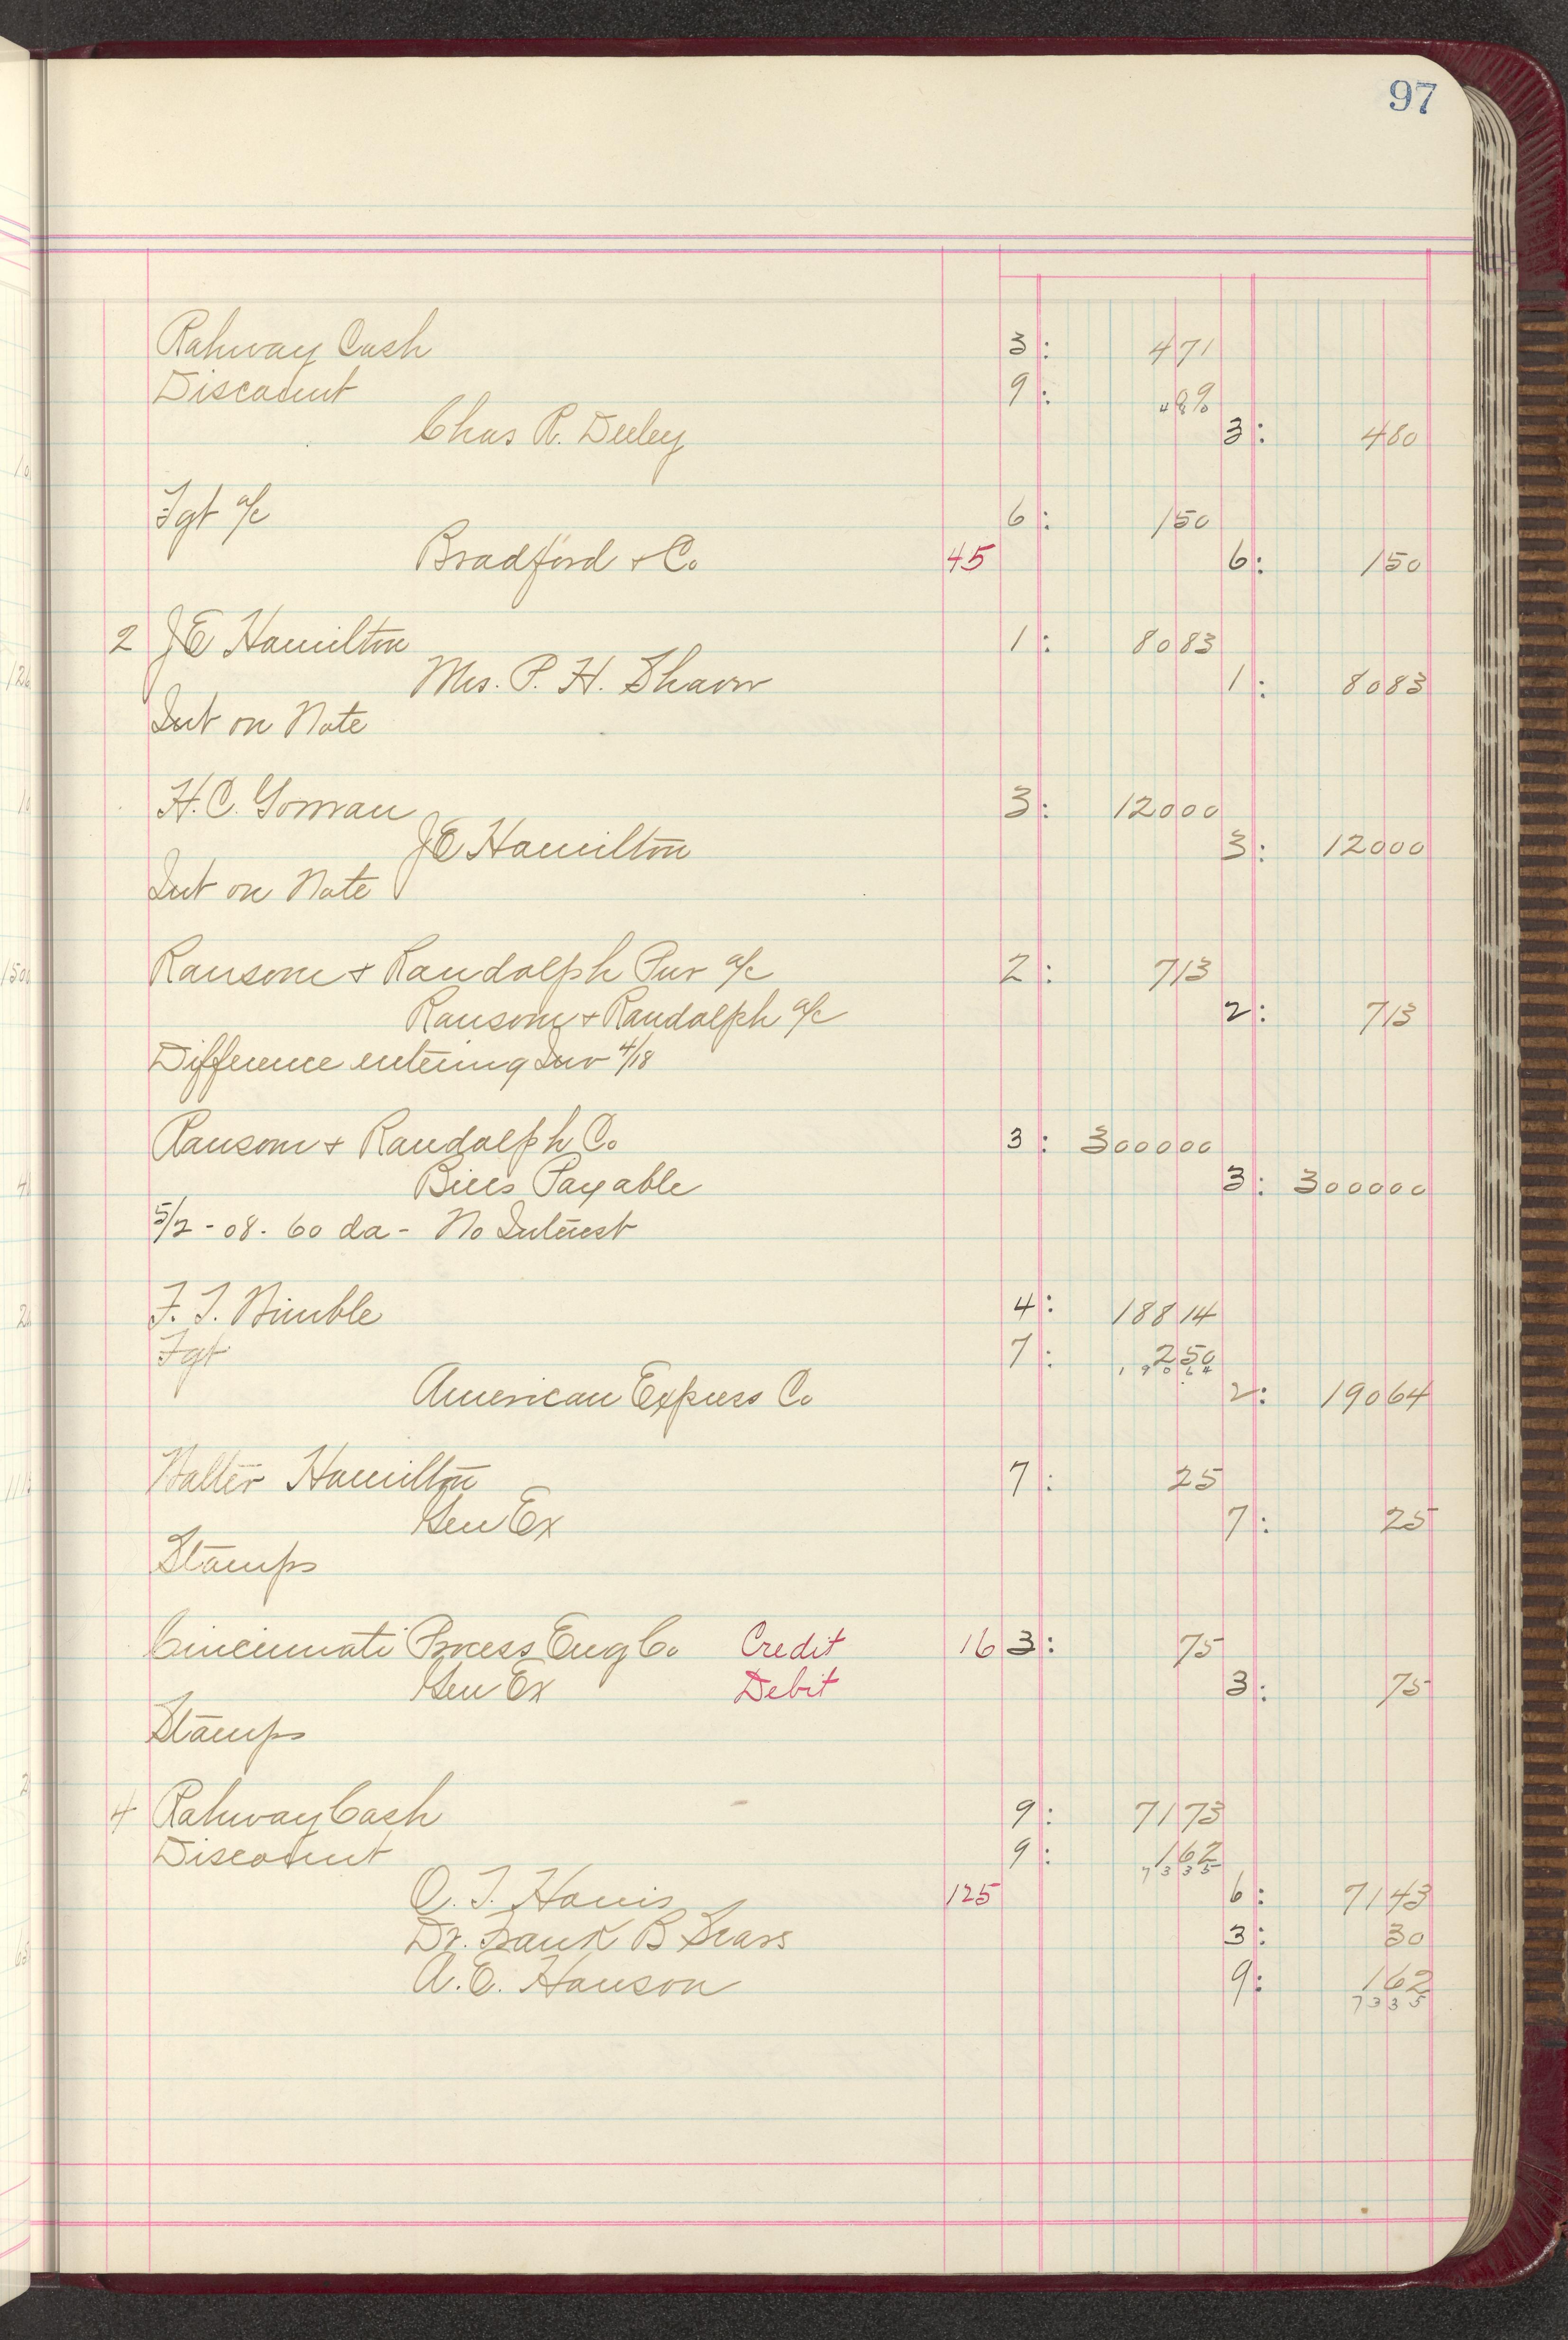 97
Rahway Cash 3: 471
Discount 9: 9
480
Chas R. Deeley 3: 480
Fgt a/c 6: 150
Bradford & Co 45 6: 150
2 J E Hamilton 1: 8083
Mrs. P. H. Shaver 1: 8083
Int on Note
H. C. Gorman 3: 12000
J E Hamilton 3: 12000
Int on Note
Ransom & Randolph Pur a/c 2: 713
Ransom & Randolph a/c 2: 713
Difference entering Inv 4/18
Ransom & Randolph Co 3: 300000
Bills Payable 3: 300000
5/2 - 08. 60 da - No Interest
F. T. 4: 18814
Fgt 7: 250
19064
American Express Co 2: 19064
Walter Hamilton 7: 25
Gen Ex 7: 25
Stamps
Cincinnati Process Eng Co Credit 16 3: 75
Gen Ex Debit 3: 75
Stamps
4 Rahway Cash 9: 7173
Discount 9: 162
7335
O. T. Harris 125 6: 7143
Dr. Frank B Sears 3: 30
A. E. Hanson 9: 162
7335